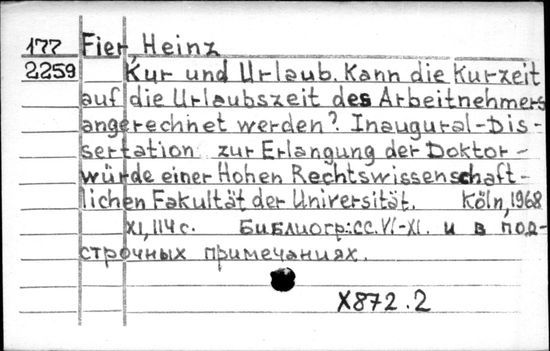 177 Fier, Heinz
2259 Kur und Urlaub. Kann die Kurzeit
auf die Urlaubszeit des Arbeitnehmers
angerechnet werden? Inaugural-Dis-
sertation zur Erlangung der Doktor-
würde einer Hohen Rechtswissenschaft-
lichen Fakultät der Universität. Köln, 1968
XI, 114 c. Библиогр: сс. VI-XI. и в под-
строчных примечаниях.
X872.2